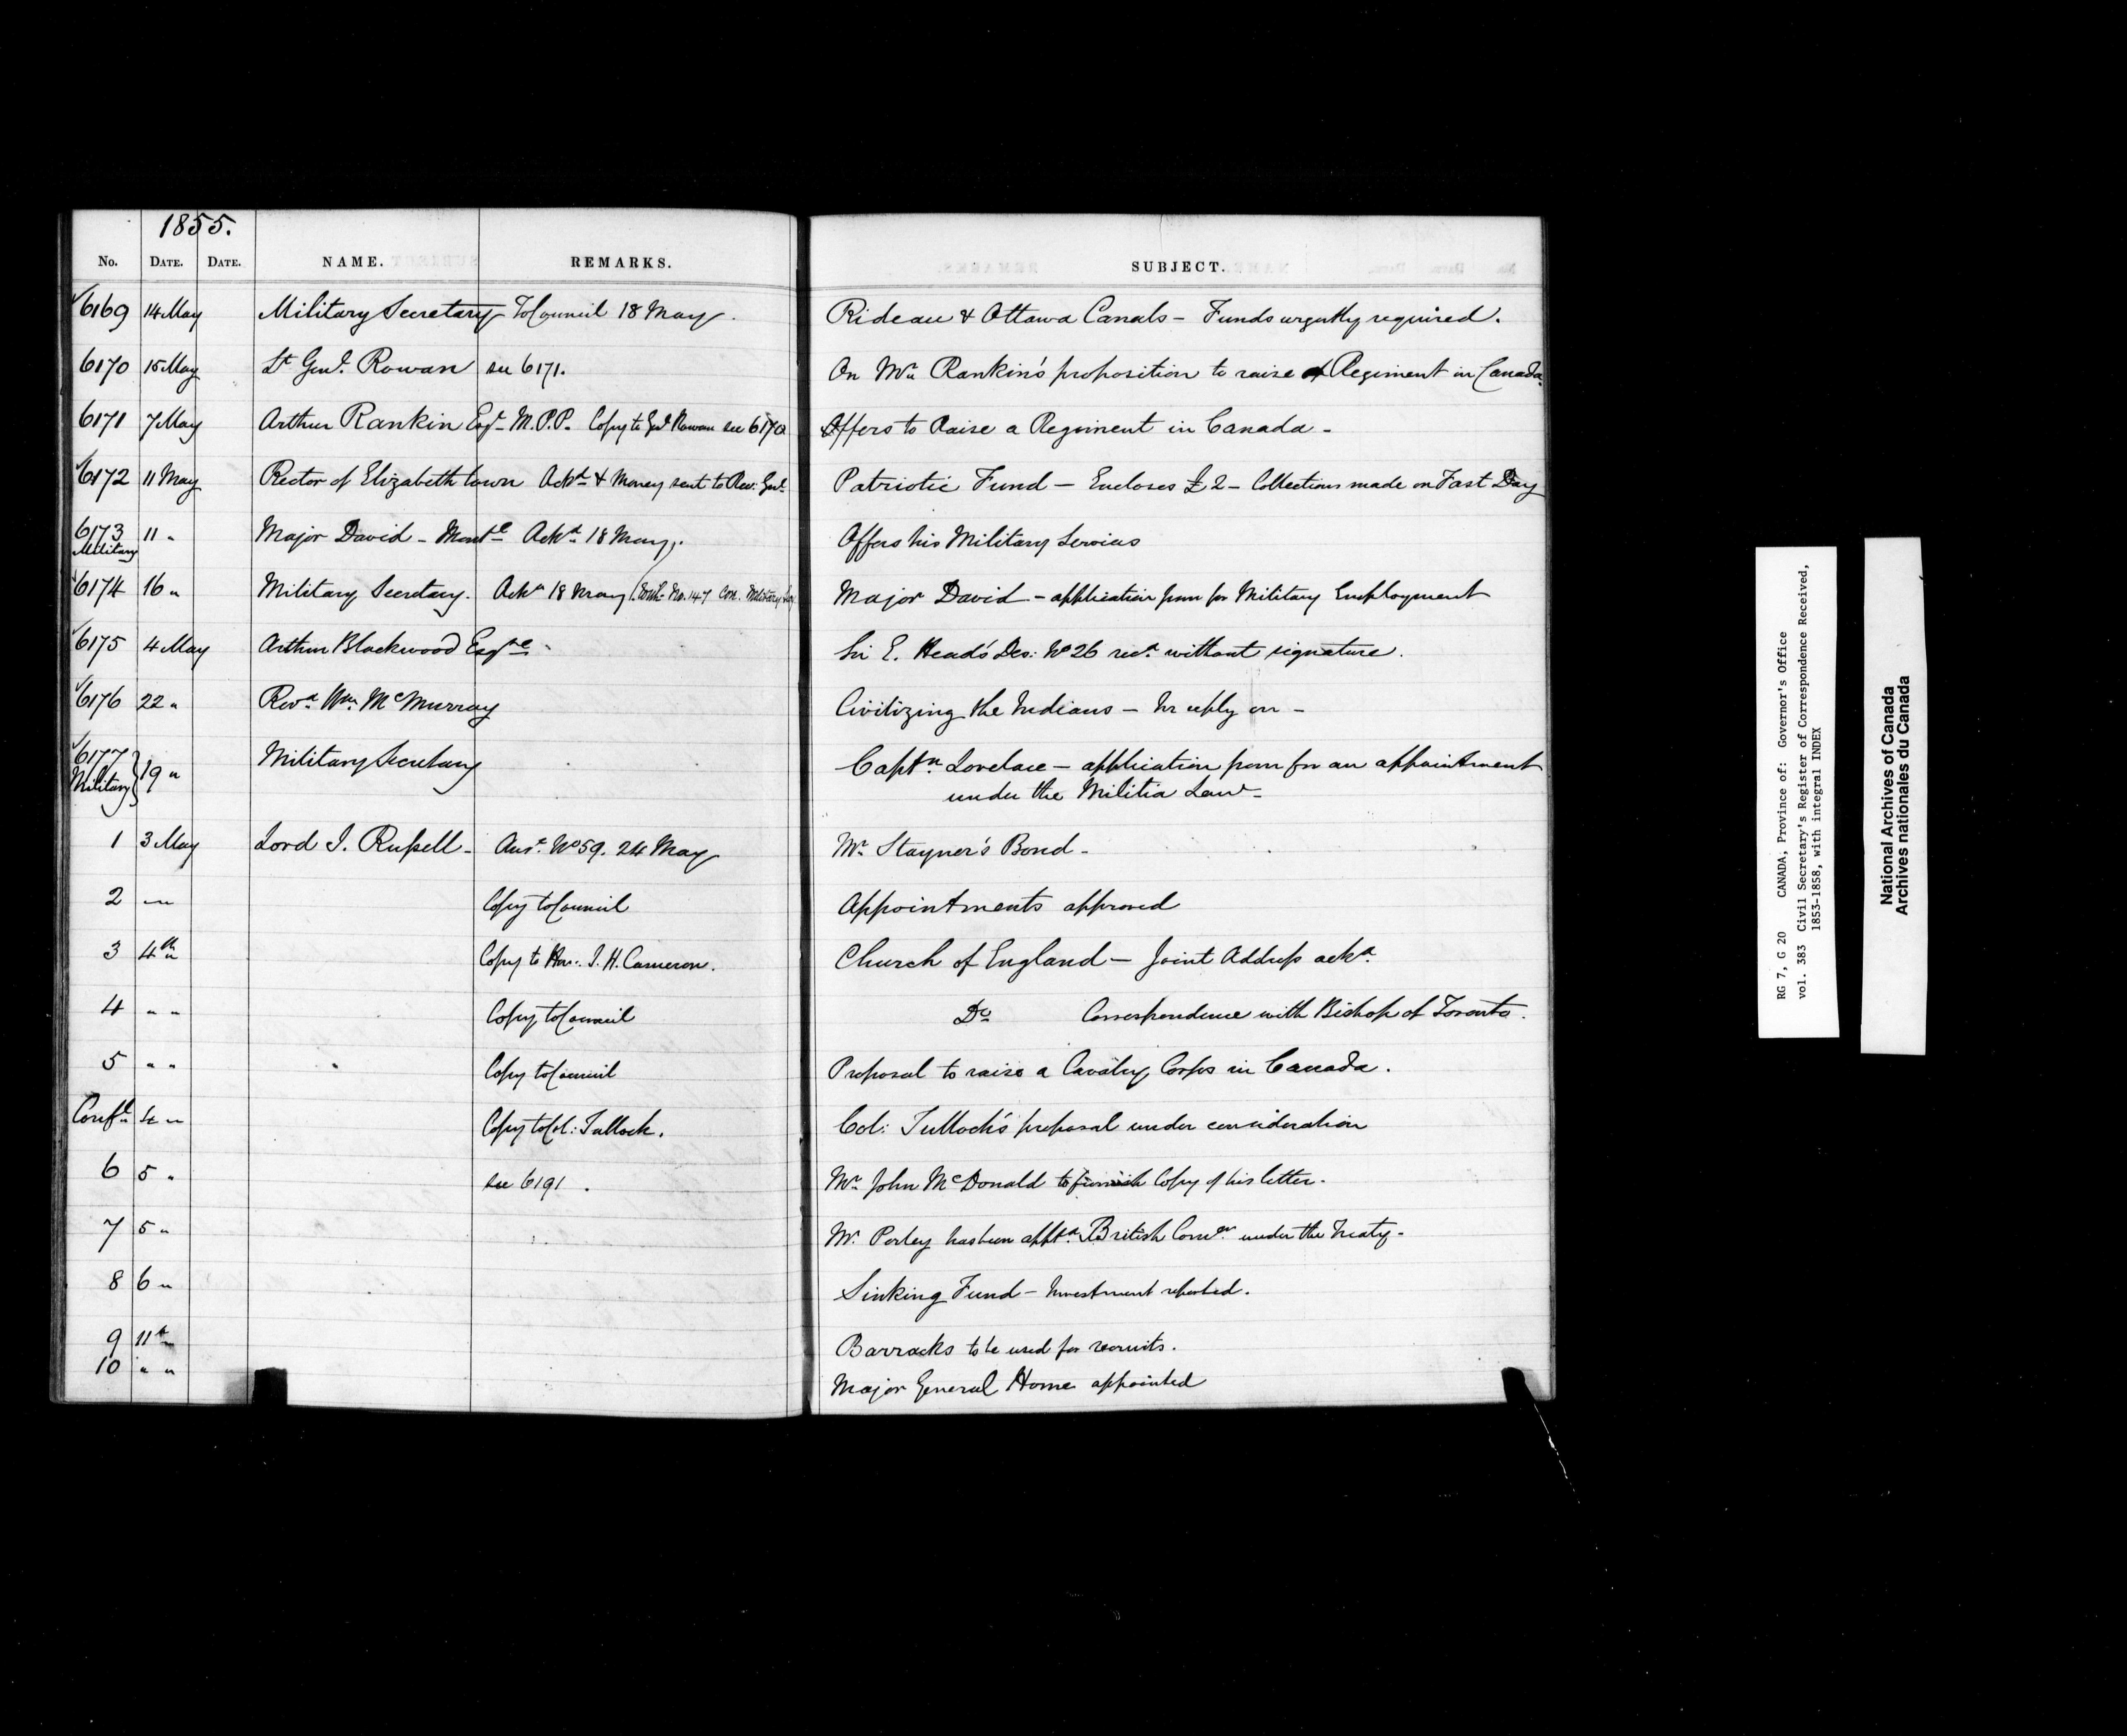 1855.
No. DATE. DATE. NAME. REMARKS. SUBJECT.
6169 14 May Military Secretary To Council 18 May. Rideau & Ottawa Canals - Funds urgently required.
6170 15 May Lt Genl. Rowan see 6171. On Mr. Rankin's proposition to raise a Regiment in Canada.
6171 7 May Arthur Rankin Esqr. M.P.P. Copy to Genl Rowan see 6170 Offers to Raise a Regiment in Canada -
6172 11 May Rector of Elizabeth town Ackd. & Money sent to Rec: Genl. Patriotic Fund - Encloses £2 - Collections made on Fast Day
6173 11 " Major David - Montl. Ackd. 18 May. Offers his Military Services
Military
6174 16 " Military Secretary. Ackd. 18 May No. 147 Military Major David - application from for Military Employment
6175 4 May Arthur Blackwood Esqre. Sir E. Head's Des: No 26 recd. without signature.
6176 22 " Revd. Wm. McMurray Civilizing the Indians - In reply on -
6177 19 " Military Secretary Captn. Lovelace - application from for an appointment
Military under the Militia Law -
1 3 May Lord J. Russell - Ansd. No 59. 24 May Mr. Stayner's Bond -
2 " " Copy to Council Appointments approved
3 4th " Copy to Hon: J. H. Cameron. Church of England - Joint Address ackd.
4 " " Copy to Council Do Correspondence with Bishop of Toronto.
5 " " Copy to Council Proposal to raise a Cavalry Corps in Canada.
Confl. 4 " Copy to Col: Tulloch. Col: Tulloch's proposal under consideration
6 5 " see 6191. Mr. John McDonald to furnish Copy of his letter.
7 5 " Mr. Perley has been apptd. British Comr. under the Treaty -
8 6 " Sinking Fund - Investment reported.
9 11th Barracks to be used for recruits.
10 " " Major General Home appointed
RG 7, G 20 CANADA, Province of: Governor's Office
vol. 383 Civil Secretary's Register of Correspondence Received,
1853-1858, with integral INDEX
National Archives of Canada
Archives nationales du Canada